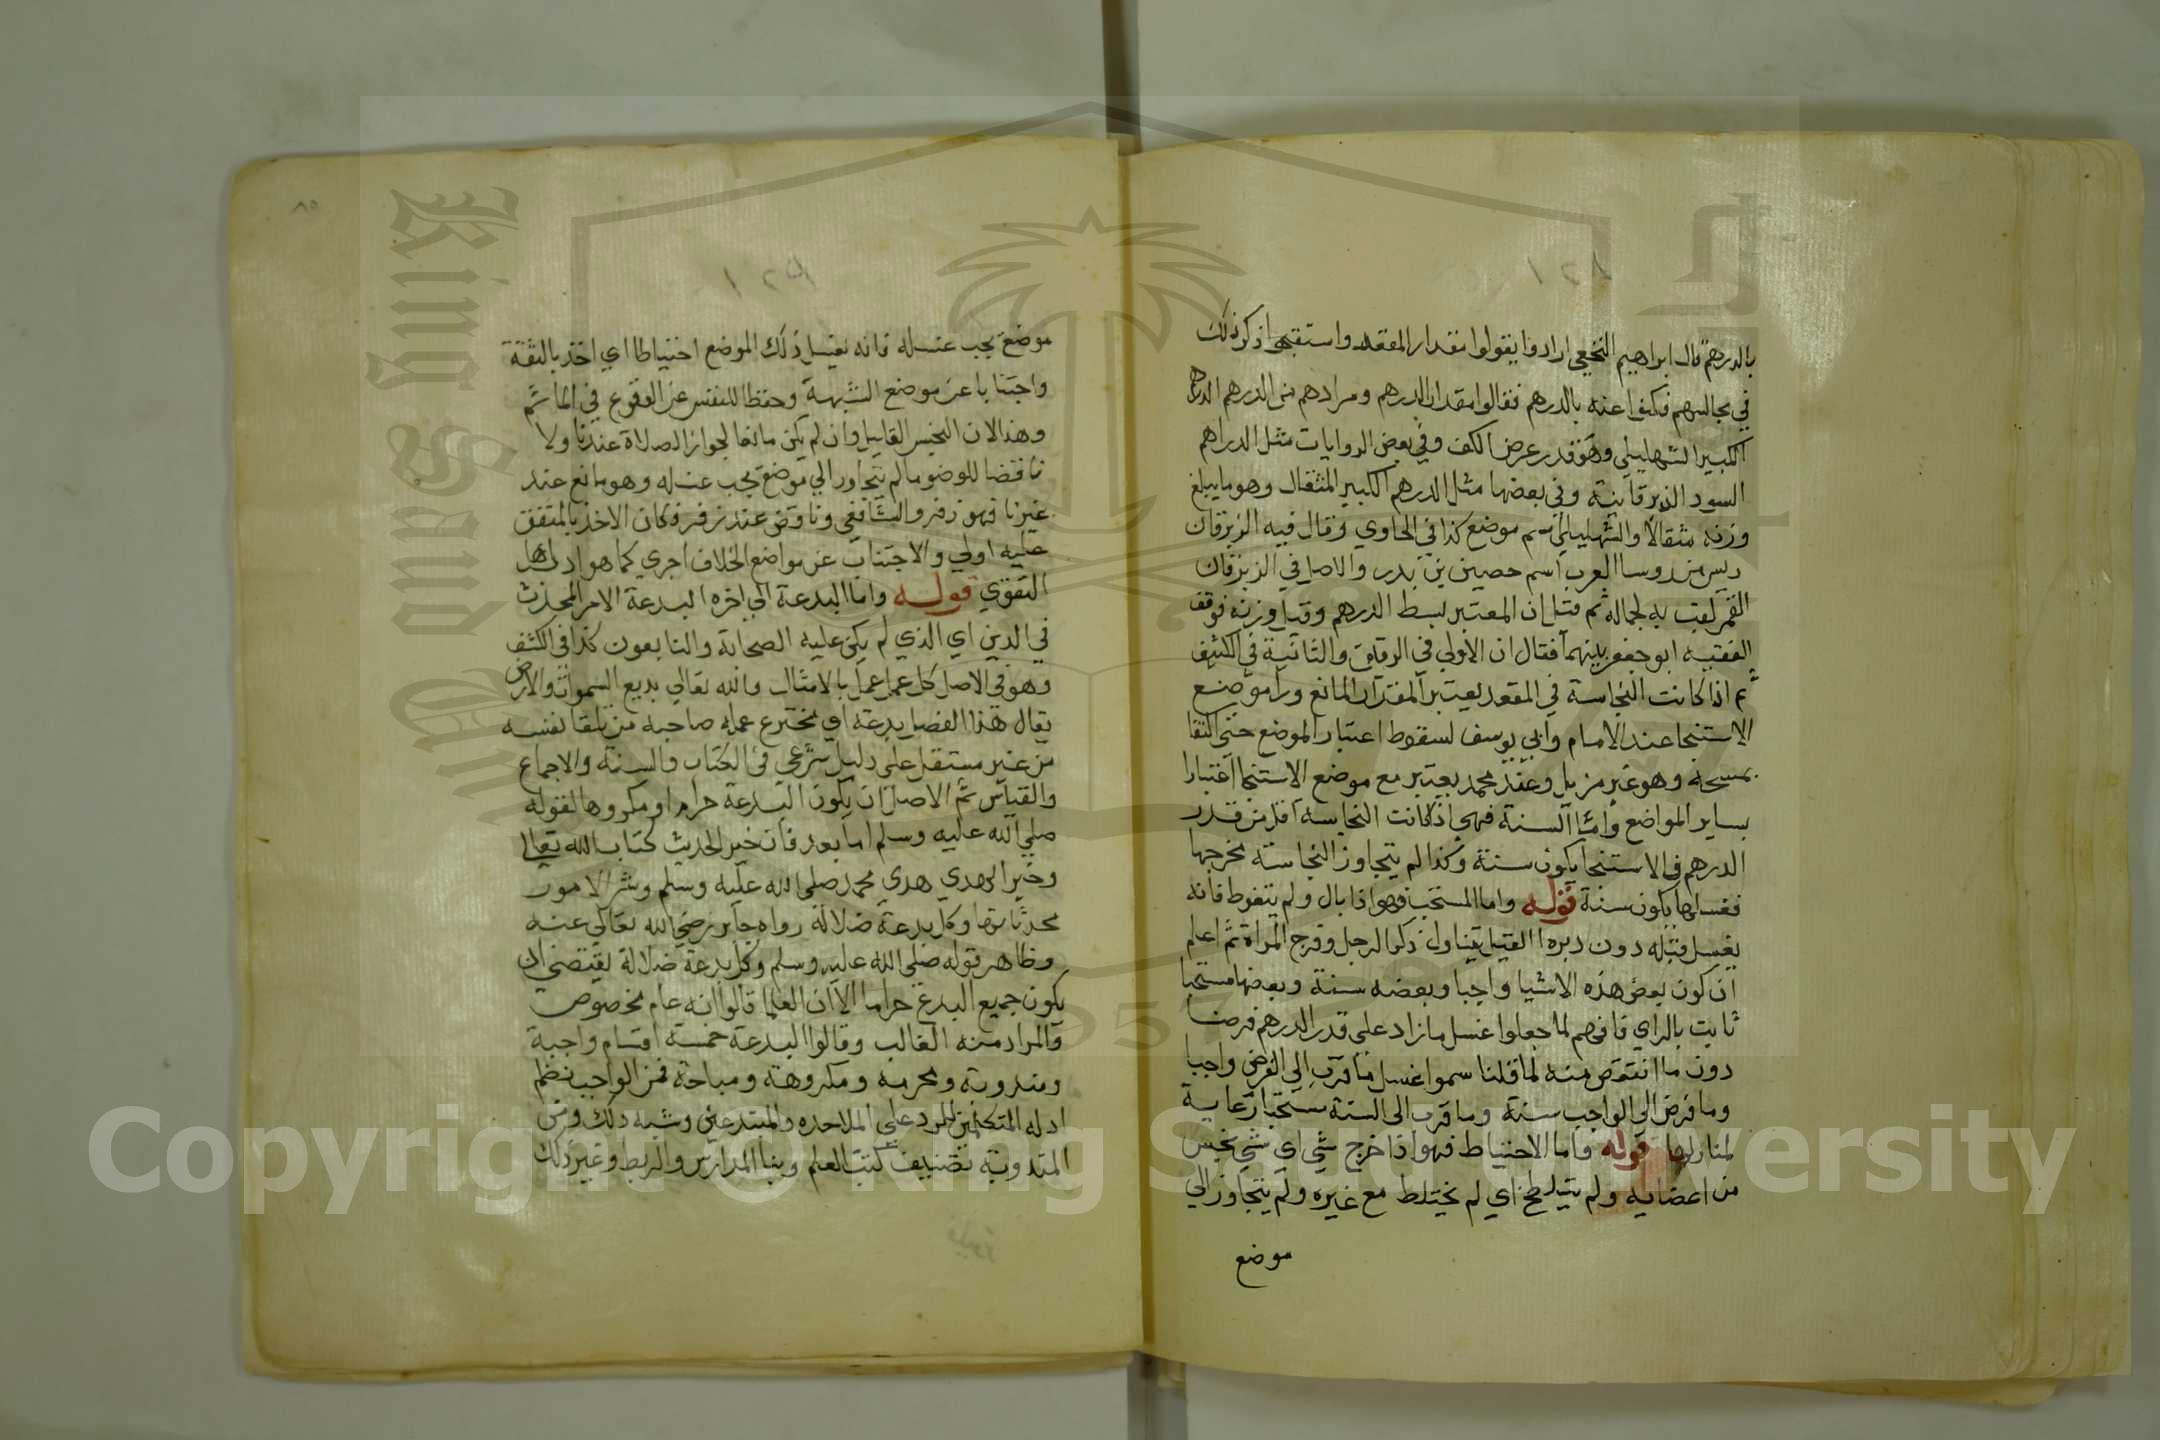 بالدرهم قال ابراهيم النخعي ارادوا يقولوا مقدار المقعد واستقبحوا ذكر ذلك
في مجالسهم فكنوا عنه بالدرهم فقالوا مقدار الدرهم ومرادهم من الدرهم الدرهم
الكبير الشهليلي وهو قدر عرض الكف وفي بعض الروايات مثل الدراهم
السود الزبرقانية وفي بعضها مثل الدرهم الكبير المثقال وهو ما يبلغ
وزنه مثقالا والشهليلي اسم موضع كذا في الحاوي وقال فيه الزبرقان
ريس من روسا العرب اسم حصين بن بدر والاصل في الزبرقان
القمر لقب به لجماله ثم قيل ان المعتبر بسط الدرهم وقيل وزنه فوقف
الفقيه ابو جعفر بينهما فقال ان الاولي في الرقاق والثانية في الكثيف
ثم اذا كانت النجاسة في المقعد يعتبر المقدار المانع ورا موضع
الاستنجا عند الامام وابي يوسف لسقوط اعتبار الموضع حتي النقا
بمسحه وهو غير مزيل وعند محمد يعتبر مع موضع الاستنجا اعتبارا
بساير المواضع واما السنة فهي اذا كانت النجاسة اقل من قدر
الدرهم في الاستنجا يكون سنة وكذا لم يتجاوز النجاسته مخرجها
فغسلها يكون سنة قوله واما المستحب فهو اذا بال ولم يتغوط فانه
يغسل قبله دون دبره القبل يتناول ذكر الرجل وفرج المراة ثم اعلم
ان كون بعض هذه الاشيا واجبا وبعضه سنة وبعضها مستحبا
ثابت بالراي فافهم لما جعلوا غسل ما زاد علي قدر الدرهم فرضا
دون ما انتقص منه لما قلنا سموا غسل ما قرب الي الفرض واجبا
وما قرض الي الواجب سنة وما قرب الي السنة مستحبا رعاية
لمنازلها قوله فاما الاحتياط فهو اذا خرج شي اي شي نجس
من اعضايه ولم يتلطخ اي لم يختلط مع غيره ولم يتجاوز الي
موضع
٨٥
موضع يجب غسله فانه يغسل ذلك الموضع احتياطا اي اخذ بالثقة
واجتنابا عن موضع الشبهة وحفظا للنفس عن الوقوع في الماثم
وهذا لان النجس القليل وان لم يكن مانعا لجواز الصلاة عندنا ولا
ناقضا للوضو ما لم يتجاوز الي موضع يجب غسله وهو مانع عند
غيرنا فهو زفر والشافعي وناقض عند زفر فكان الاخذ بالمتفق
عليه اولي والاجتناب عن مواضع الخلاف اجري كما هو اداب اهل
التقوي قوله واما البدعة الي اخره البدعة الامر المحدث
في الدين اي الذي لم يكن عليه الصحابة والتابعون كذا في الكشف
وهو في الاصل كل عمل عمل بالامثال والله تعالي بديع السموات والارض
يقال هذا الفصل بدعة اي مخترع عمله صاحبه من تلقا نفسه
من غير مستقل علي دليل شرعي في الكتاب والسنة والاجماع
والقياس ثم الاصل ان يكون البدعة حرام او مكروها لقوله
صلي الله عليه وسلم اما بعد فان خير الحديث كتاب الله تعالي
وخير الهدي هدي محمد صلي الله عليه وسلم وشر الامور
محدثاتها وكل بدعة ضلالة رواه جابر رضي الله تعالي عنه
وظاهر قوله صلي الله عليه وسلم وكل بدعة ضلالة يقتضي ان
يكون جميع البدع حراما الا ان العلما قالوا انه عام مخصوص
والمراد منه الغالب وقالوا البدعة خمسة اقسام واجبة
ومندوبة ومحرمه ومكروهة ومباحة فمن الواجب نظم
ادله المتكلمين للرد علي الملاحده والمبتدعين وشبه ذلك ومن
المندوبة تصنيف كتب العلم وبنا المدارس والربط وغير ذلك
Copyright © King Saud University
King Saud University
1957